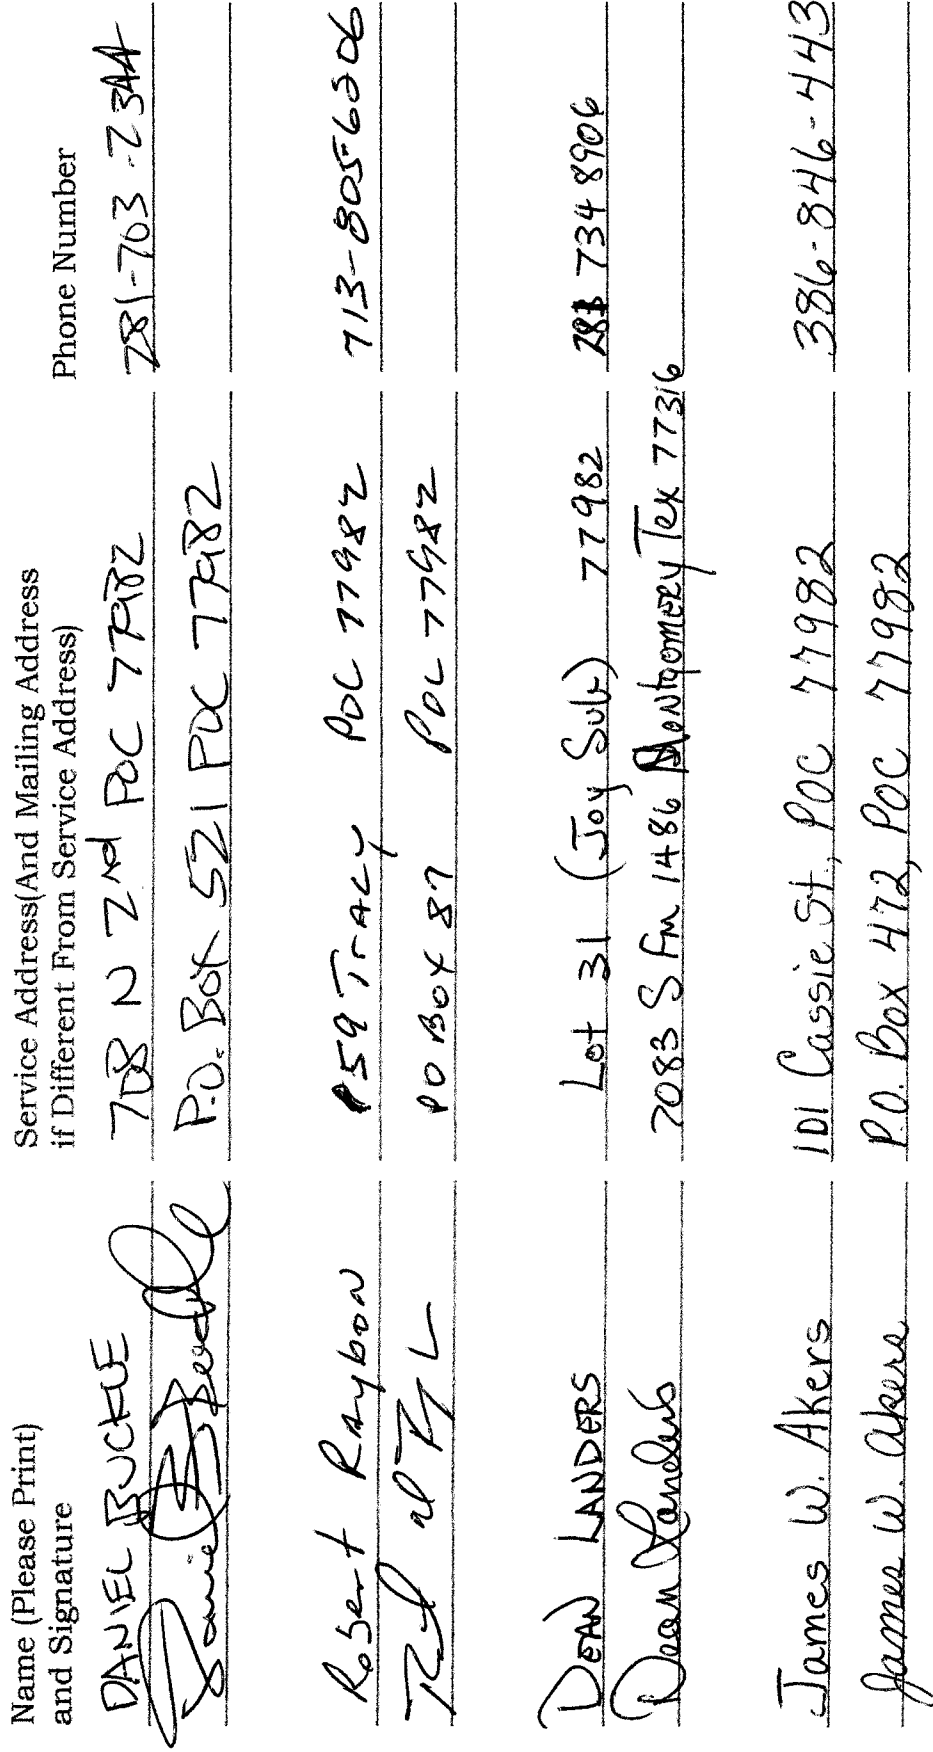 Name (Please Print)
and Signature
Service Address(And Mailing Address
if Different From Service Address)
Phone Number
DANIEL BUCKLE
708 N 2nd POC 77982
281-703-2344
P.O. Box 521 POC 77982
Robert Raybon
159 Tracy POC 77982
713-805-6206
PO Box 87 POC 77982
DEAN LANDERS
Lot 31 (Joy Sub) 77982
281 734 8906
Dean Landers
7083 S Fm 1486 Montgomery Tex 77316
James W. Akers
101 Cassie St., POC 77982
386-846-443
James W. Akers
P.O. Box 472, POC 77982